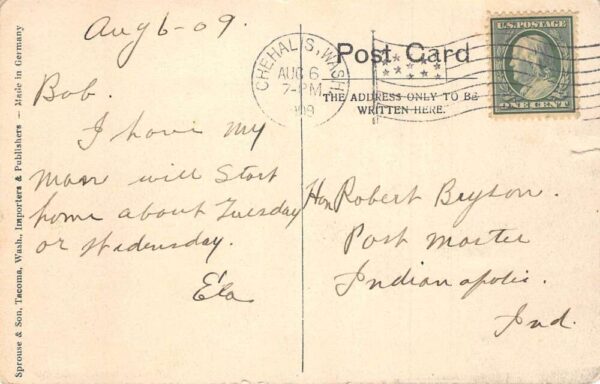 Aug 6-09.
Bob.
I have my
man will start
home about Tuesday
or Wednesday.
Ela
CHEHALIS, WASH.
AUG 6
7-PM
1909
Post Card
THE ADDRESS ONLY TO BE
WRITTEN HERE.
U.S. POSTAGE
ONE CENT
Hon Robert Bryson.
Post Master
Indianapolis.
Ind.
Sprouse & Son, Tacoma, Wash., Importers & Publishers — Made in Germany